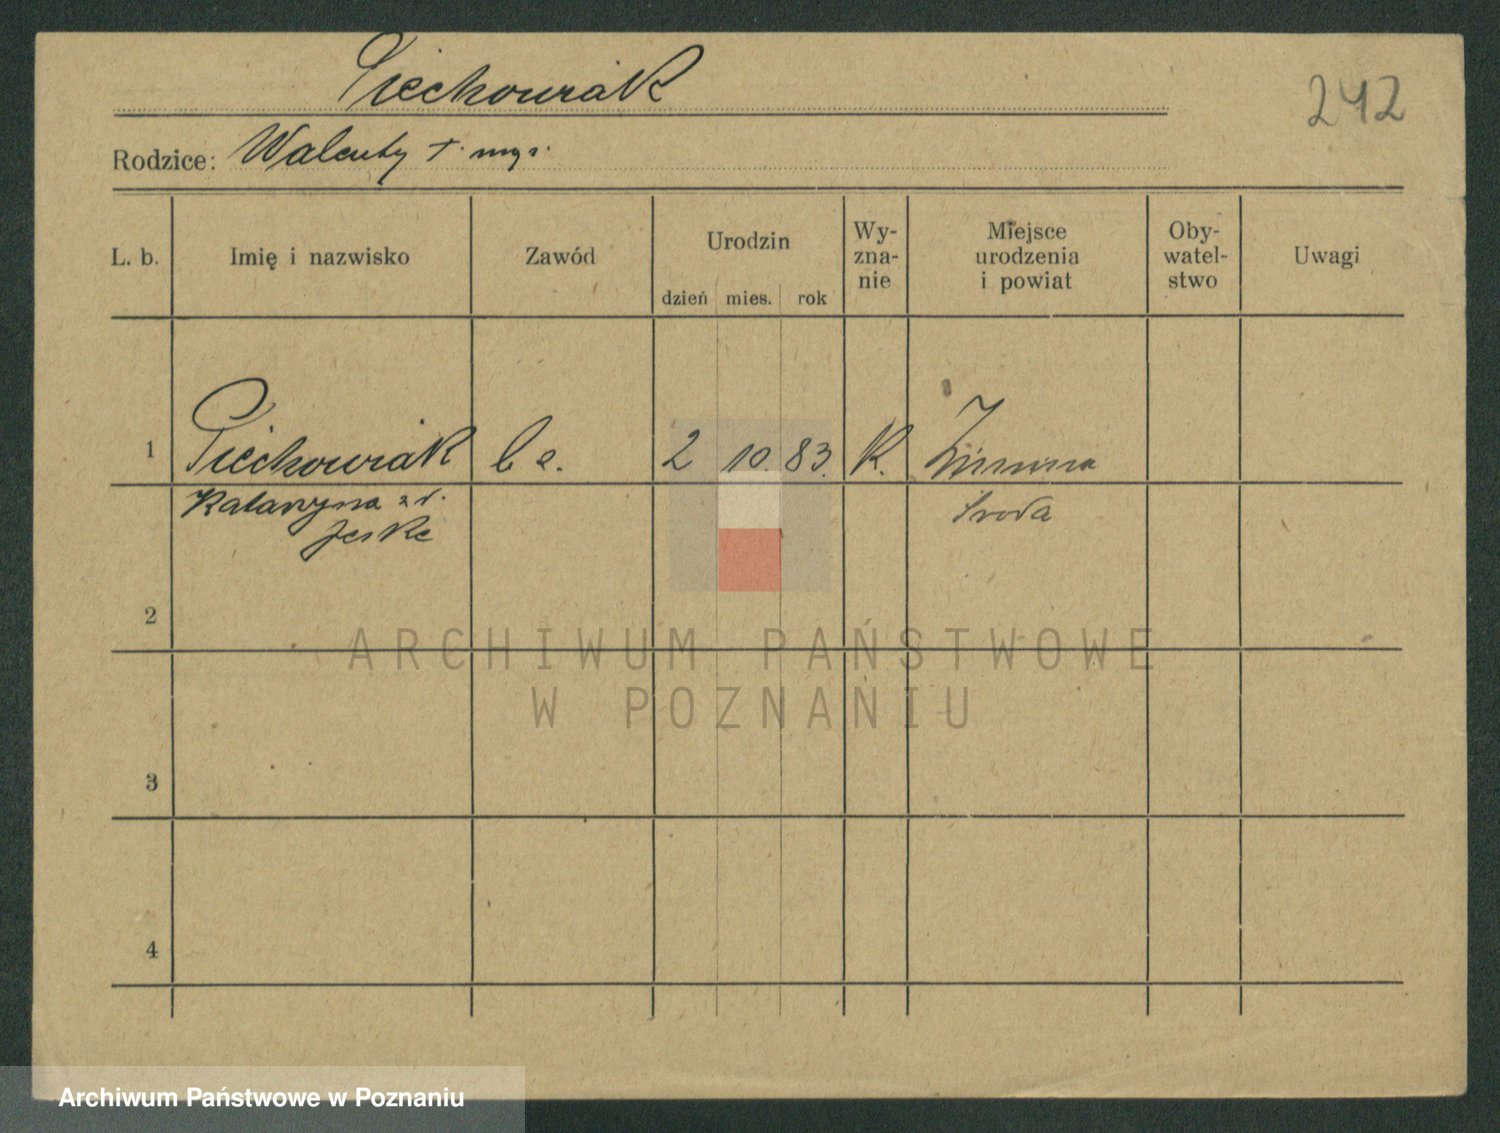 Piechowiak
242
Rodzice: Walenty
L. b. Imię i nazwisko Zawód Urodzin dzień mies. rok Wy-
zna-
nie Miejsce
urodzenia
i powiat Oby-
watel-
stwo Uwagi
1 Piechowiak 2 10. 83. K. Zimina
Katarzyna z d. Środa
Jeske
2
3
4
ARCHIWUM PAŃSTWOWE
W POZNANIU
Archiwum Państwowe w Poznaniu